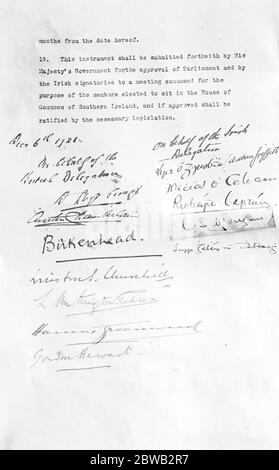 months from the date hereof.
18. This instrument shall be submitted forthwith by His
Majesty's Government forthe approval of Parliament and by
the Irish signatories to a meeting summoned for the
purpose of the members elected to sit in the House of
Commons of Southern Ireland, and if approved shall be
ratified by the necessary legislation.
Decr 6th 1921
On behalf of the
British Delegation
D Lloyd George
Austen Chamberlain
Birkenhead.
Winston S. Churchill
L Worthington-Evans
Hamar Greenwood
Gordon Hewart
On behalf of the Irish
Delegation
Art Ó Gríobhtha
Mícheál Ó Coileáin
Riobárd Bartún
alamy
Image ID: 2WB2R7
www.alamy.com